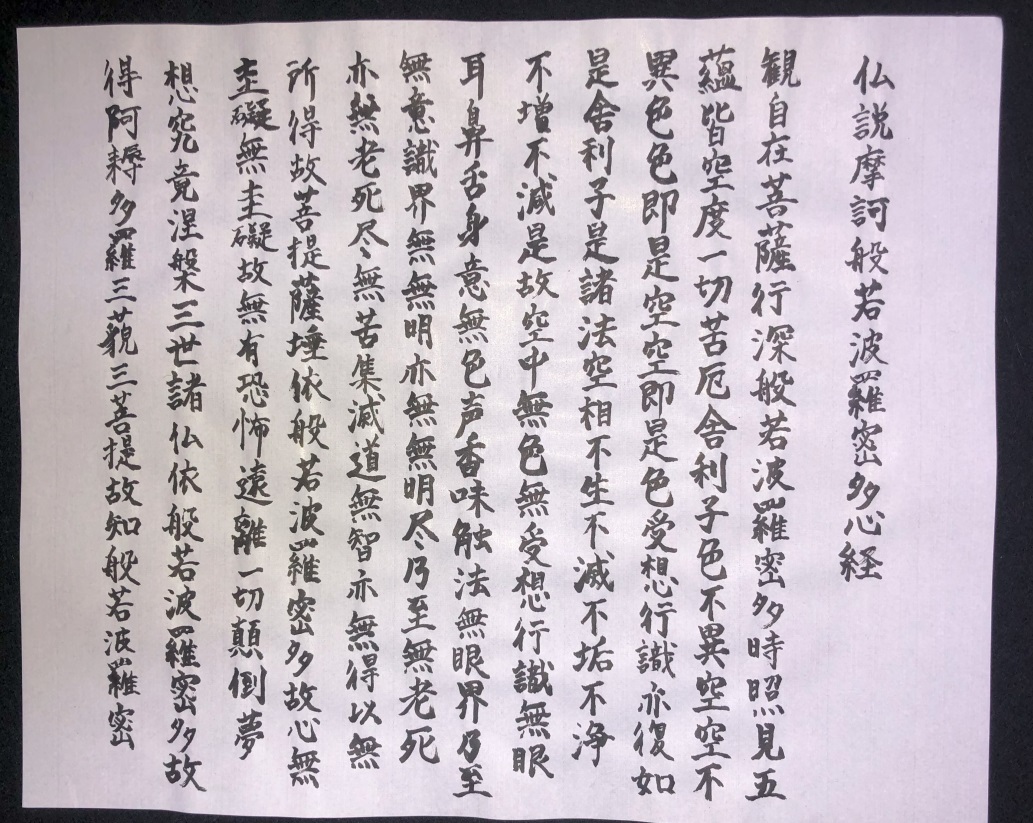 仏説摩訶般若波羅密多心経
観自在菩薩行深般若波羅密多時照見五
蘊皆空度一切苦厄舎利子色不異空空不
異色色即是空空即是色受想行識亦復如
是舎利子是諸法空相不生不滅不垢不浄
不増不減是故空中無色無受想行識無眼
耳鼻舌身意無色声香味触法無眼界乃至
無意識界無無明亦無無明尽乃至無老死
亦無老死尽無苦集滅道無智亦無得以無
所得故菩提薩埵依般若波羅密多故心無
圭礙無圭礙故無有恐怖遠離一切顛倒夢
想究竟涅槃三世諸仏依般若波羅密多故
得阿耨多羅三藐三菩提故知般若波羅密